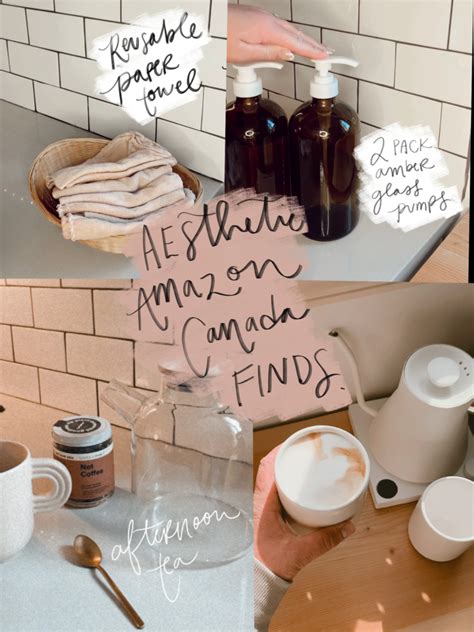 Reusable
paper
towel
2 PACK
amber
glass
pumps
AEsthetic
Amazon
Canada
FINDS.
Not
Coffee
afternoon
tea